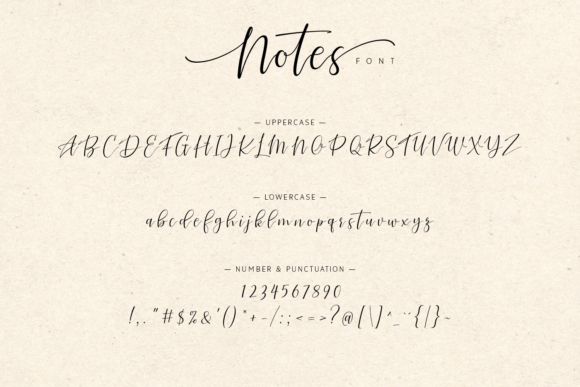 Notes FONT
— UPPERCASE —
ABCDEFGHIJKLMNOPQRSTUVWXYZ
— LOWERCASE —
abcdefghijklmnopqrstuvwxyz
— NUMBER & PUNCTUATION —
1234567890
!,."#$%&'()*+-/:;<=>?@[\]^_¨{|}~